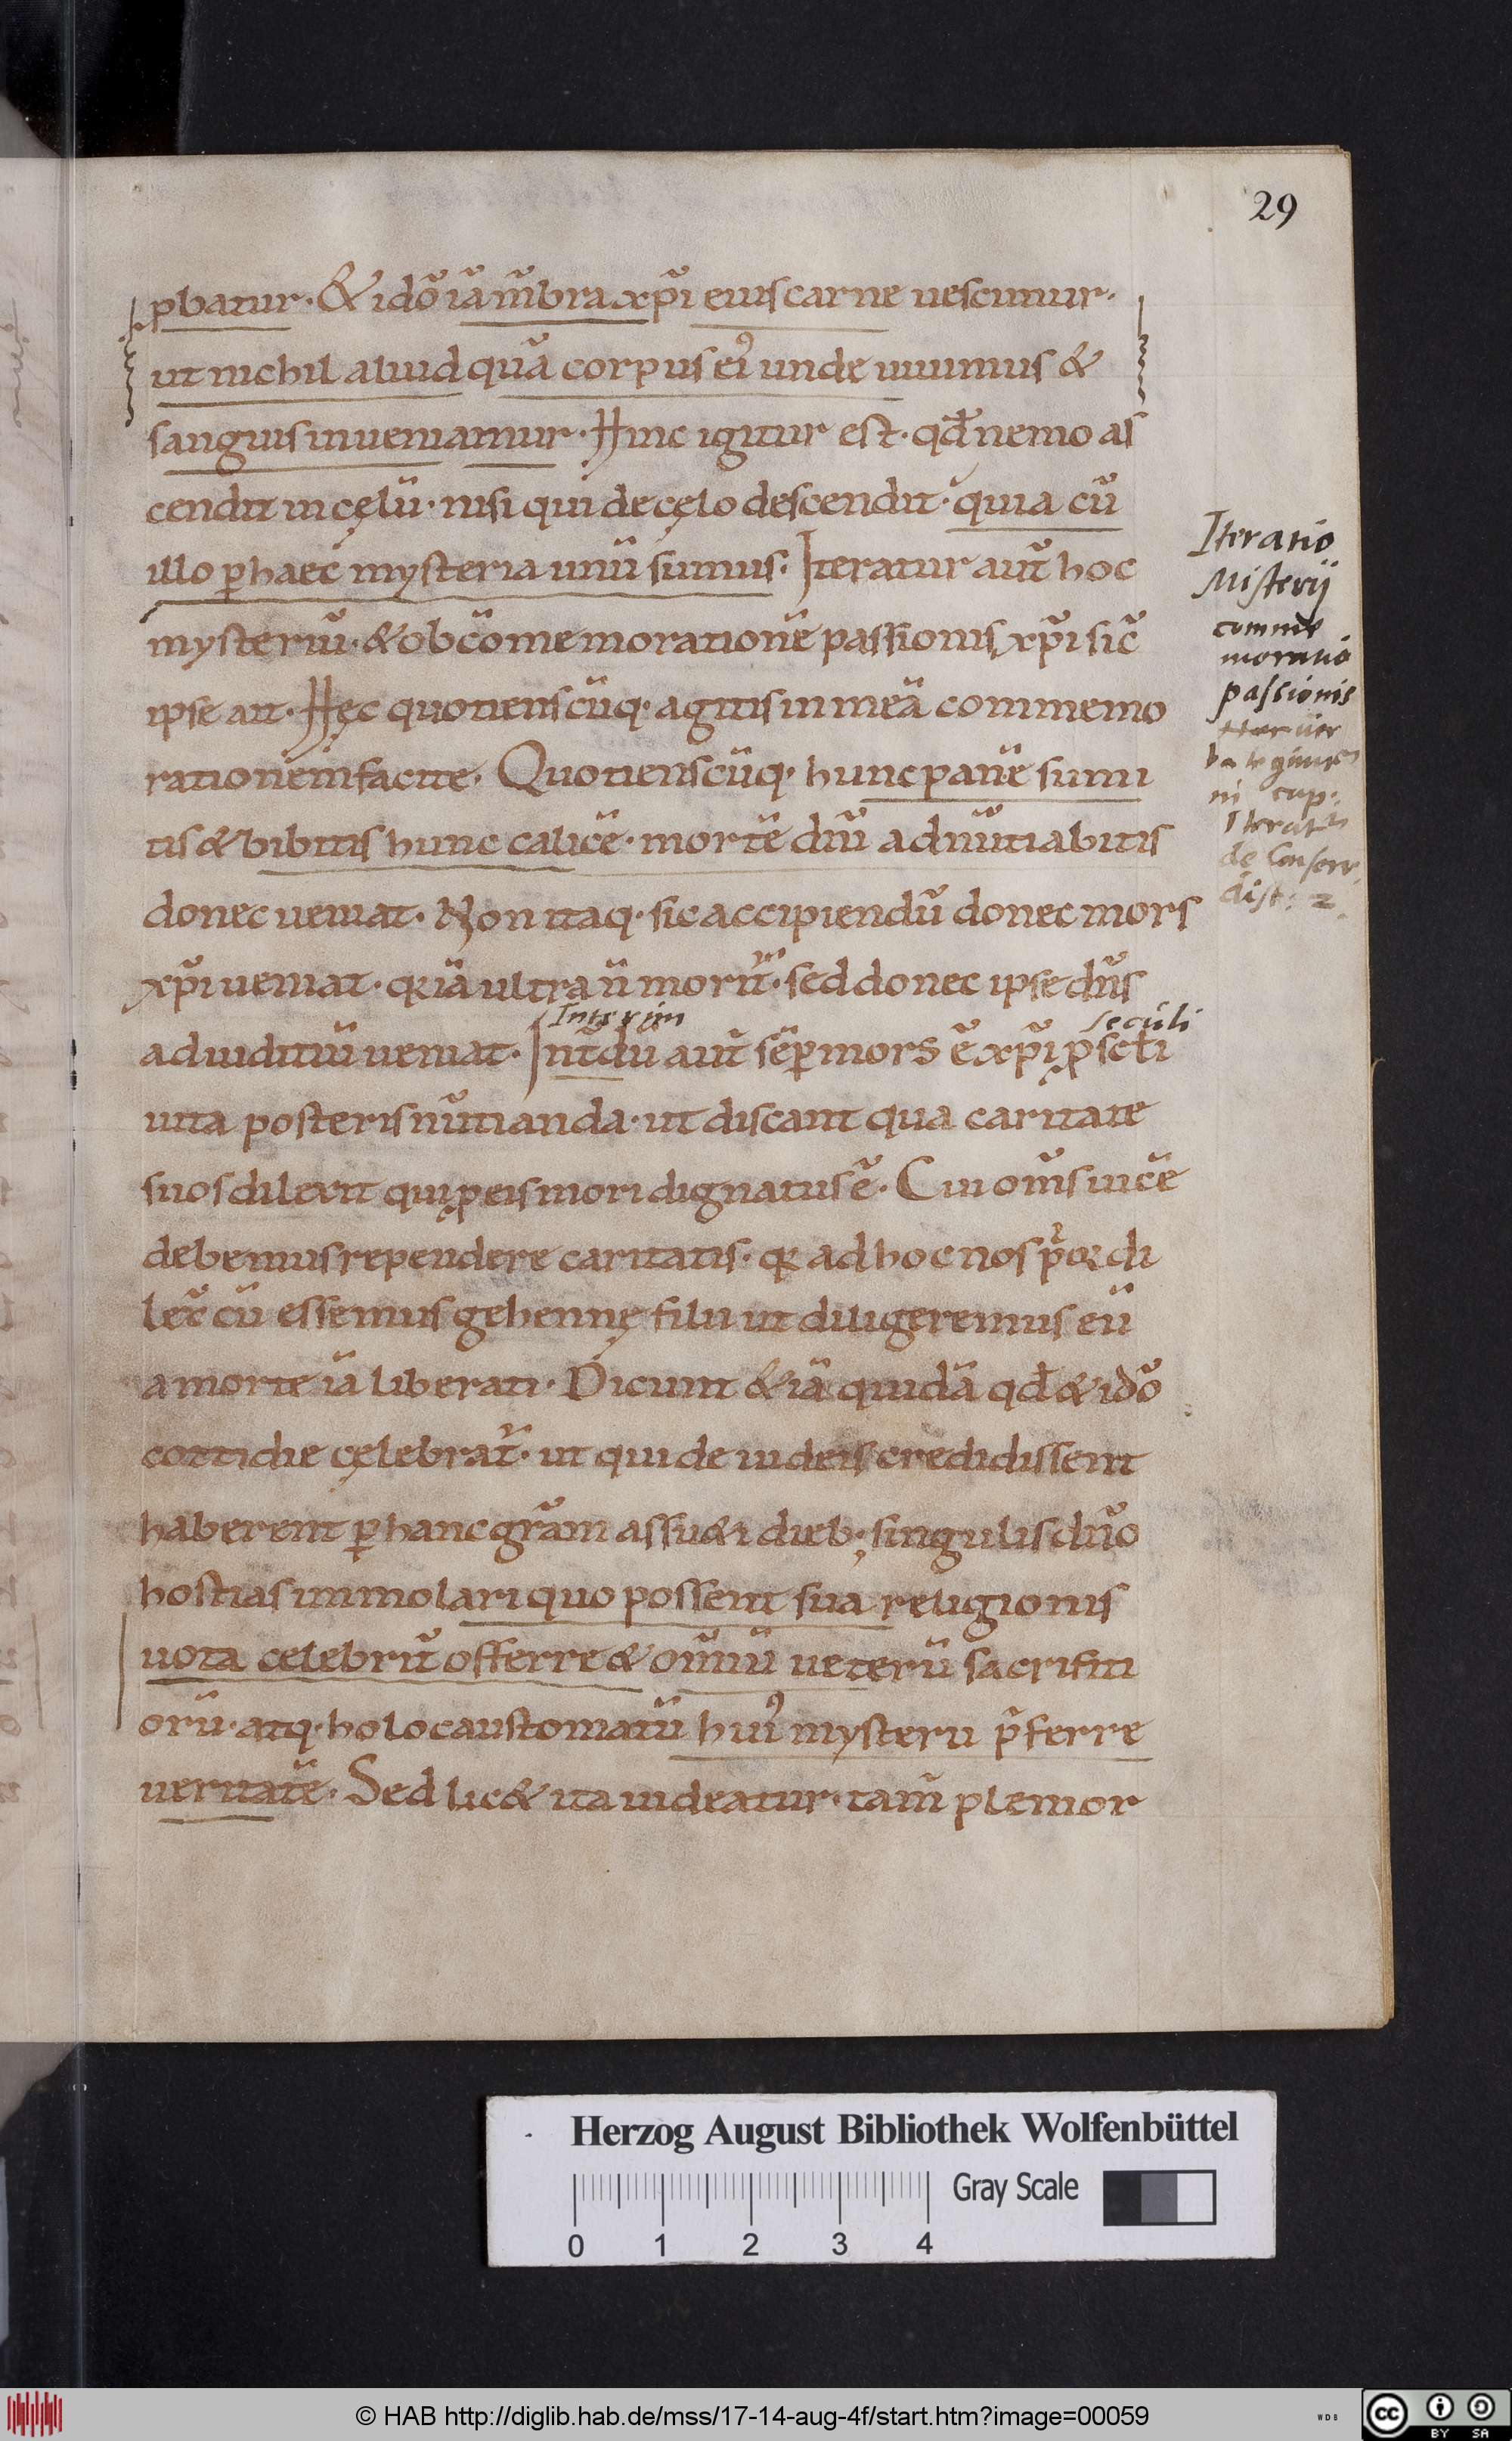 29
ꝓbatur. & idõ iã mẽbra xp̃i eius carne uescimur.
ut nichil aliud quã corpus ei' unde uiuimus &
sanguis inueniamur. Hinc igitur est. qđ nemo as
cendit in cęlũ. nisi qui de cęlo descendit. quia cũ
illo ꝑ haec mysteria unũ sumus. Iteratur aut̃ hoc
mysteriũ. & ob cõmemorationẽ passionis xp̃i sic̃
ipse ait. Hęc quotienscũq. agitis in meã commemo
rationem facite. Quotienscũq. hunc panẽ sumi
tis & bibitis hunc calicẽ. mortẽ dñi adnũtiabitis
donec ueniat. Non itaq. sic accipiendũ donec mors
xp̃i ueniat. quiã ultra ñ morit̃. sed donec ipse dñs
Interim
seculi
ad iuditiũ ueniat. Int̃dũ aut̃ sẽꝑ mors ẽ xp̃i ꝓ scłi
uita posteris nũtianda. ut discant qua caritate
suos dilexit qui ꝓ eis mori dignatus ẽ. Cui om̃s uicẽ
debemus rependere caritatis. qꝛ ad hoc nos p̃oꝛ di
lex̃ cũ essemus gehennę filii ut diligeremus eũ
a morte iã liberati. Dicunt &iã quidã qđ & idõ
cottidie cęlebrat̃. ut qui de iudeis credidissent
haberent ꝑ hanc gr̃am assu&i dieb; singulis dño
hostias immolari quo possent sua religionis
uota celebrit̃ offerre & om̃iũ ueterũ sacrifiti
orũ. atq. holocaustomatũ hui' mysterii p̃ferre
ueritatẽ. Sed lic& ita uideatur. tam̃ plenior
Iteratio
Misterij
comme
moratio
passionis
Hæc uer
ba leguntur
in cap.
Iterat~
de Consecr.
dist: 2.
Herzog August Bibliothek Wolfenbüttel
Gray Scale
0 1 2 3 4
© HAB http://diglib.hab.de/mss/17-14-aug-4f/start.htm?image=00059
WDB
cc
BY SA